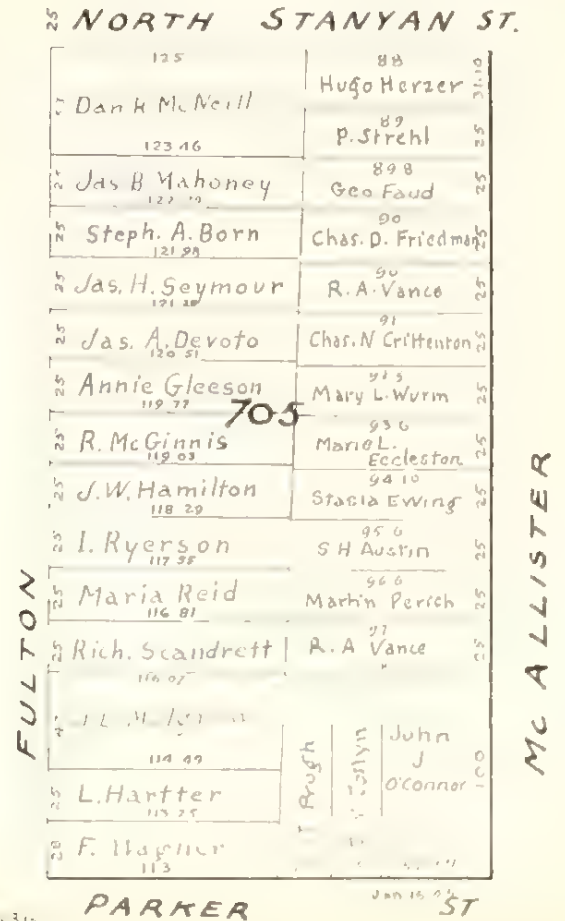 25 NORTH STANYAN ST.
125
Dan k McNeill
123 46
Jas B Mahoney
Steph. A. Born
121 98
Jas. H. Seymour
Jas. A. Devoto
120 51
Annie Gleeson
119 77
R. McGinnis
119 03
J. W. Hamilton
118 29
I. Ryerson
117 55
Maria Reid
116 81
Rich. Scandrett
116 07
114 49
L. Hartter
F. Wagner
113
705
88
Hugo Herzer
31.10
89
P. Strehl
25
89 8
Geo Faud
25
90
Chas. D. Friedman
25
90
R. A. Vance
25
91
Chas. N Crittenton
25
Mary L. Wurm
25
93 6
Marie L. Eccleston
25
94 10
Stasia Ewing
25
95 6
S H Austin
25
96 6
Martin Perich
25
97
R. A Vance
25
Prugh
John
J
O'Connor
100
25
25
25
25
25
25
25
25
25
25
25
28
FULTON
MCALLISTER
PARKER ST
Jan 15